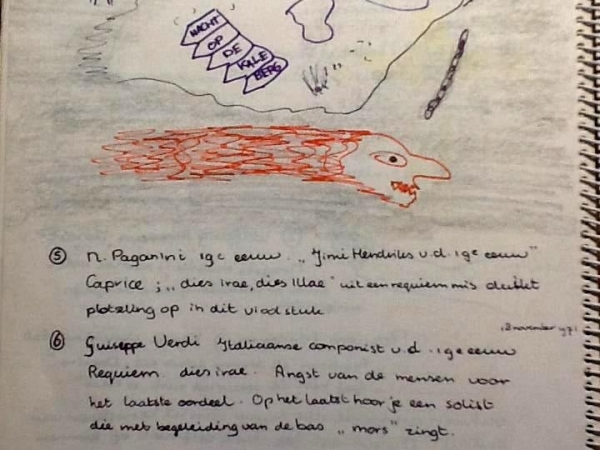 NACHT
OP
DE
KALE
BERG
⑤ N. Paganini 19e eeuw. „Jimi Hendriks v.d. 19e eeuw"
Caprice ; „dies irae, dies illae" uit een requiem mis duikt
plotseling op in dit vioolstuk
18 november 1971
⑥ Guiseppe Verdi Italiaanse componist v.d. 19e eeuw
Requiem. dies irae. Angst van de mensen voor
het laatste oordeel. Op het laatst hoor je een solist
die met begeleiding van de bas „mors" zingt.